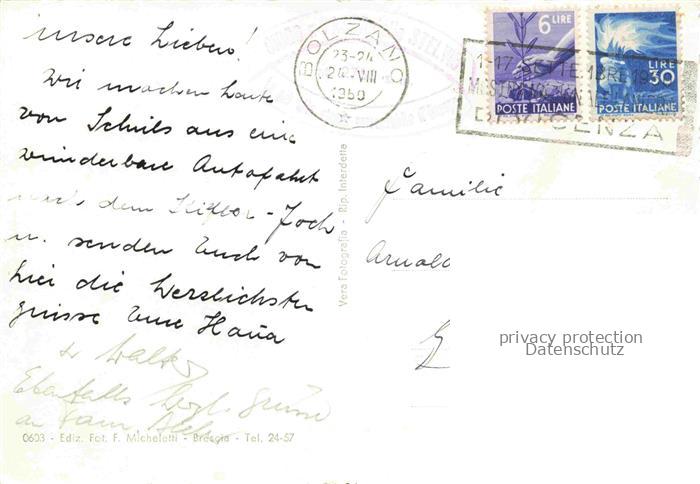 unsere Lieben!
Wir machen heute
von Schuls aus eine
wunderbare Autofahrt
nach dem Stilfser-Joch
u. senden Euch von
hier die herzlichsten
Grüsse Eure Hanna
u. Walter
Ebenfalls herzl. Grüsse
an Fam.
0603 - Ediz. Fot. F. Micheletti - Brescia - Tel. 24-57
Vera Fotografia - Rip. Interdetta
BOLZANO
23-24
VIII
1950
6 LIRE
POSTE ITALIANE
LIRE
30
POSTE ITALIANE
1-17 SETTEMBRE
Familie
Arnold
privacy protection
Datenschutz